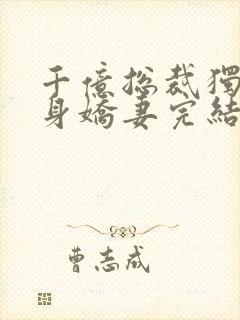 千億總裁獨
身嬌妻完結
曹志成